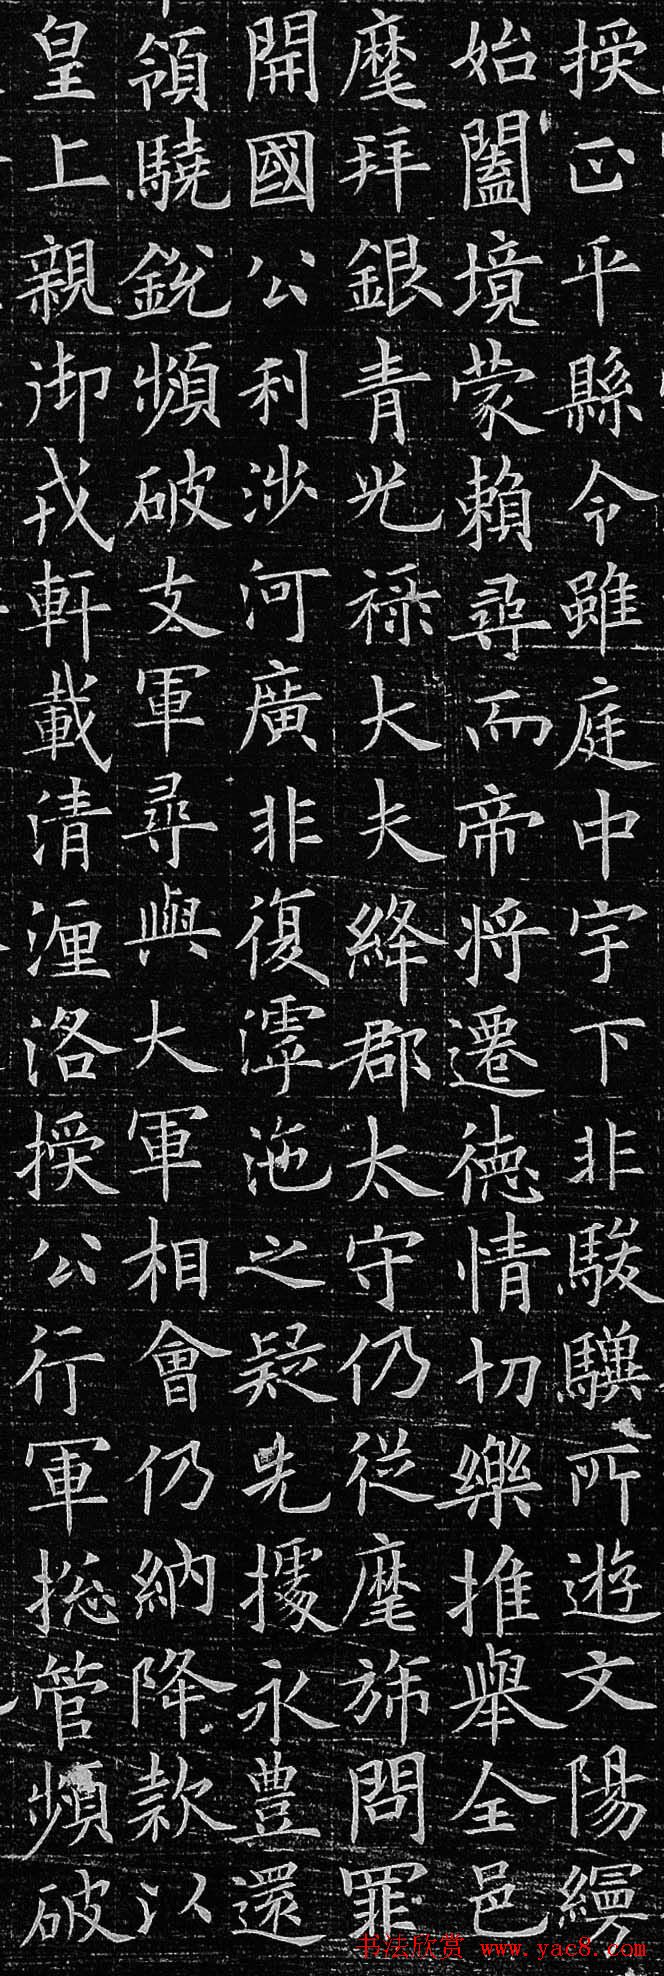 授正平縣令雖庭中宇下非駿驥所遊文陽縵
始闔境蒙賴尋而帝將遷德情切樂推舉全邑
麾拜銀青光祿大夫絳郡太守仍從麾旆問罪
開國公利涉河廣非復滹沲之疑先據永豊還
領驍銳頻破支軍尋與大軍相會仍納降款以
皇上親御戎軒載清湹洛授公行軍揔管頻破
书法欣赏 www.yac8.com